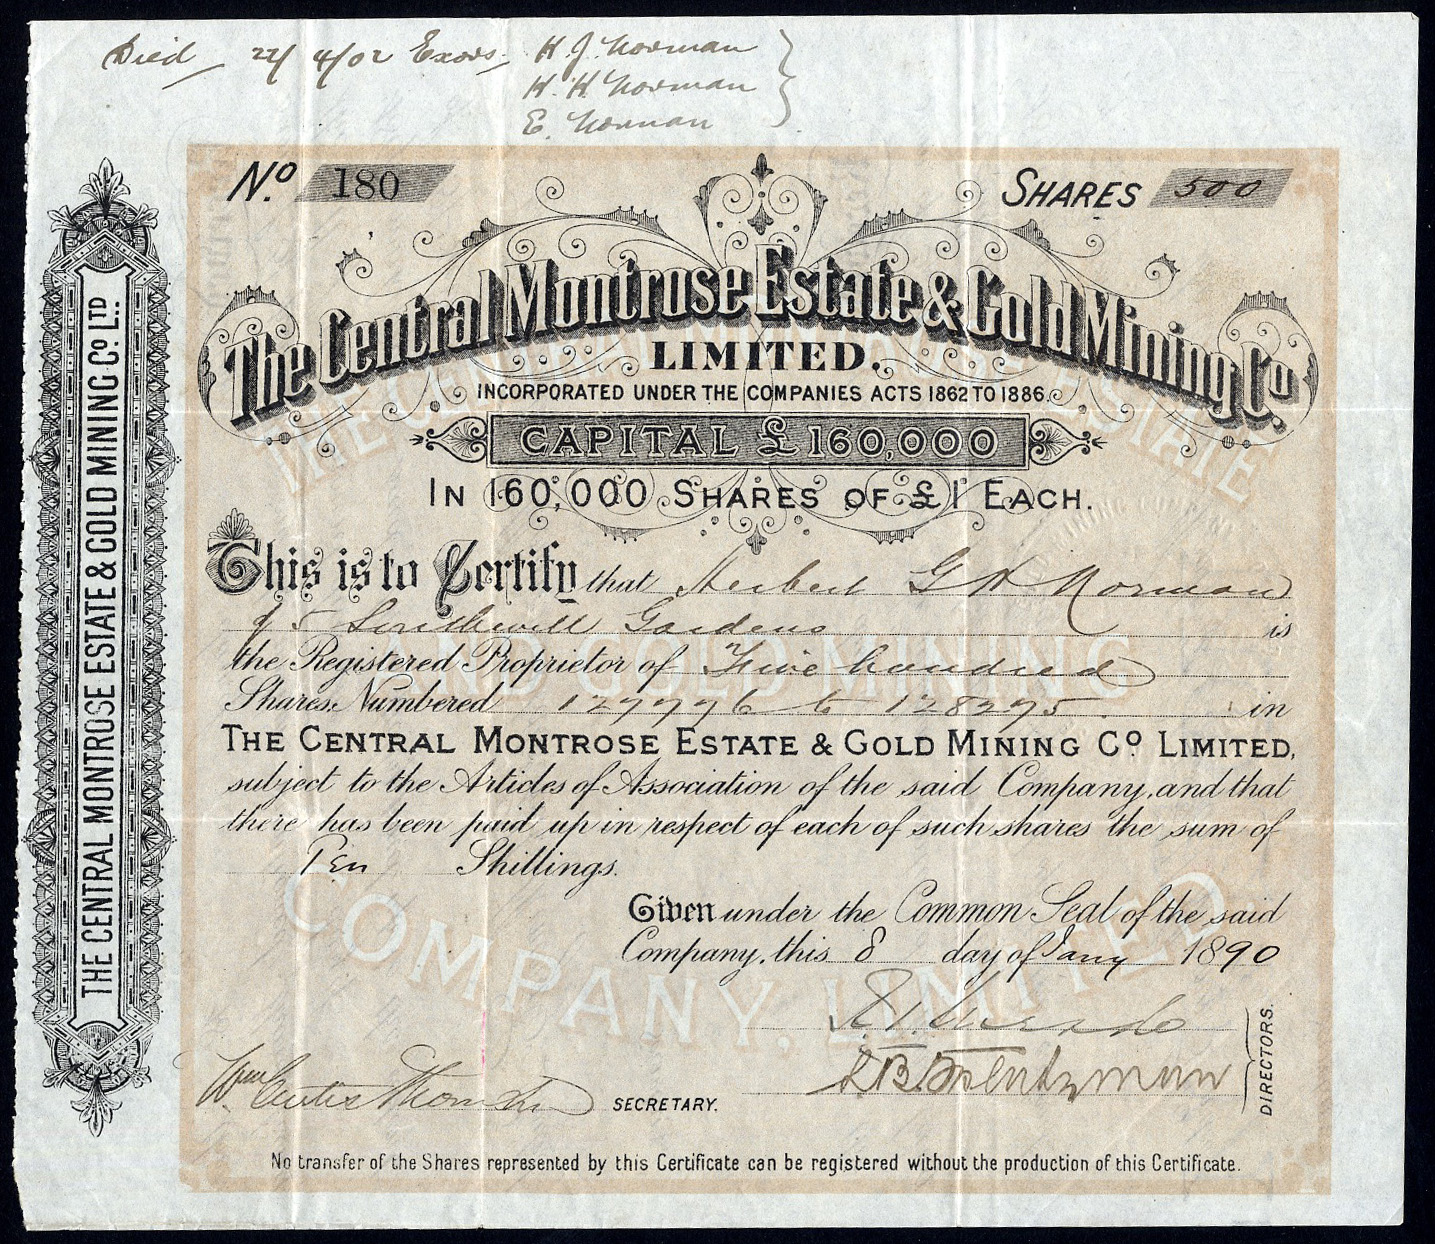 Died 22/4/02 Exors. H. J. Norman
H. H. Norman
E. Norman
No. 180
SHARES 500
The Central Montrose Estate & Gold Mining Co.
LIMITED.
INCORPORATED UNDER THE COMPANIES ACTS 1862 TO 1886.
CAPITAL £160,000
IN 160,000 SHARES OF £1 EACH.
This is to Certify that Herbert G H Norman
of 5 Gardens is
the Registered Proprietor of Five hundred
Shares Numbered 127776 to 128275 in
THE CENTRAL MONTROSE ESTATE & GOLD MINING CO LIMITED,
subject to the Articles of Association of the said Company, and that
there has been paid up in respect of each of such shares the sum of
Ten Shillings.
Given under the Common Seal of the said
Company, this 8 day of Jany 1890
DIRECTORS.
Wm Curtis SECRETARY.
No transfer of the Shares represented by this Certificate can be registered without the production of this Certificate.
THE CENTRAL MONTROSE ESTATE & GOLD MINING CO. LTD.
THE CENTRAL MONTROSE ESTATE
AND GOLD MINING
COMPANY, LIMITED